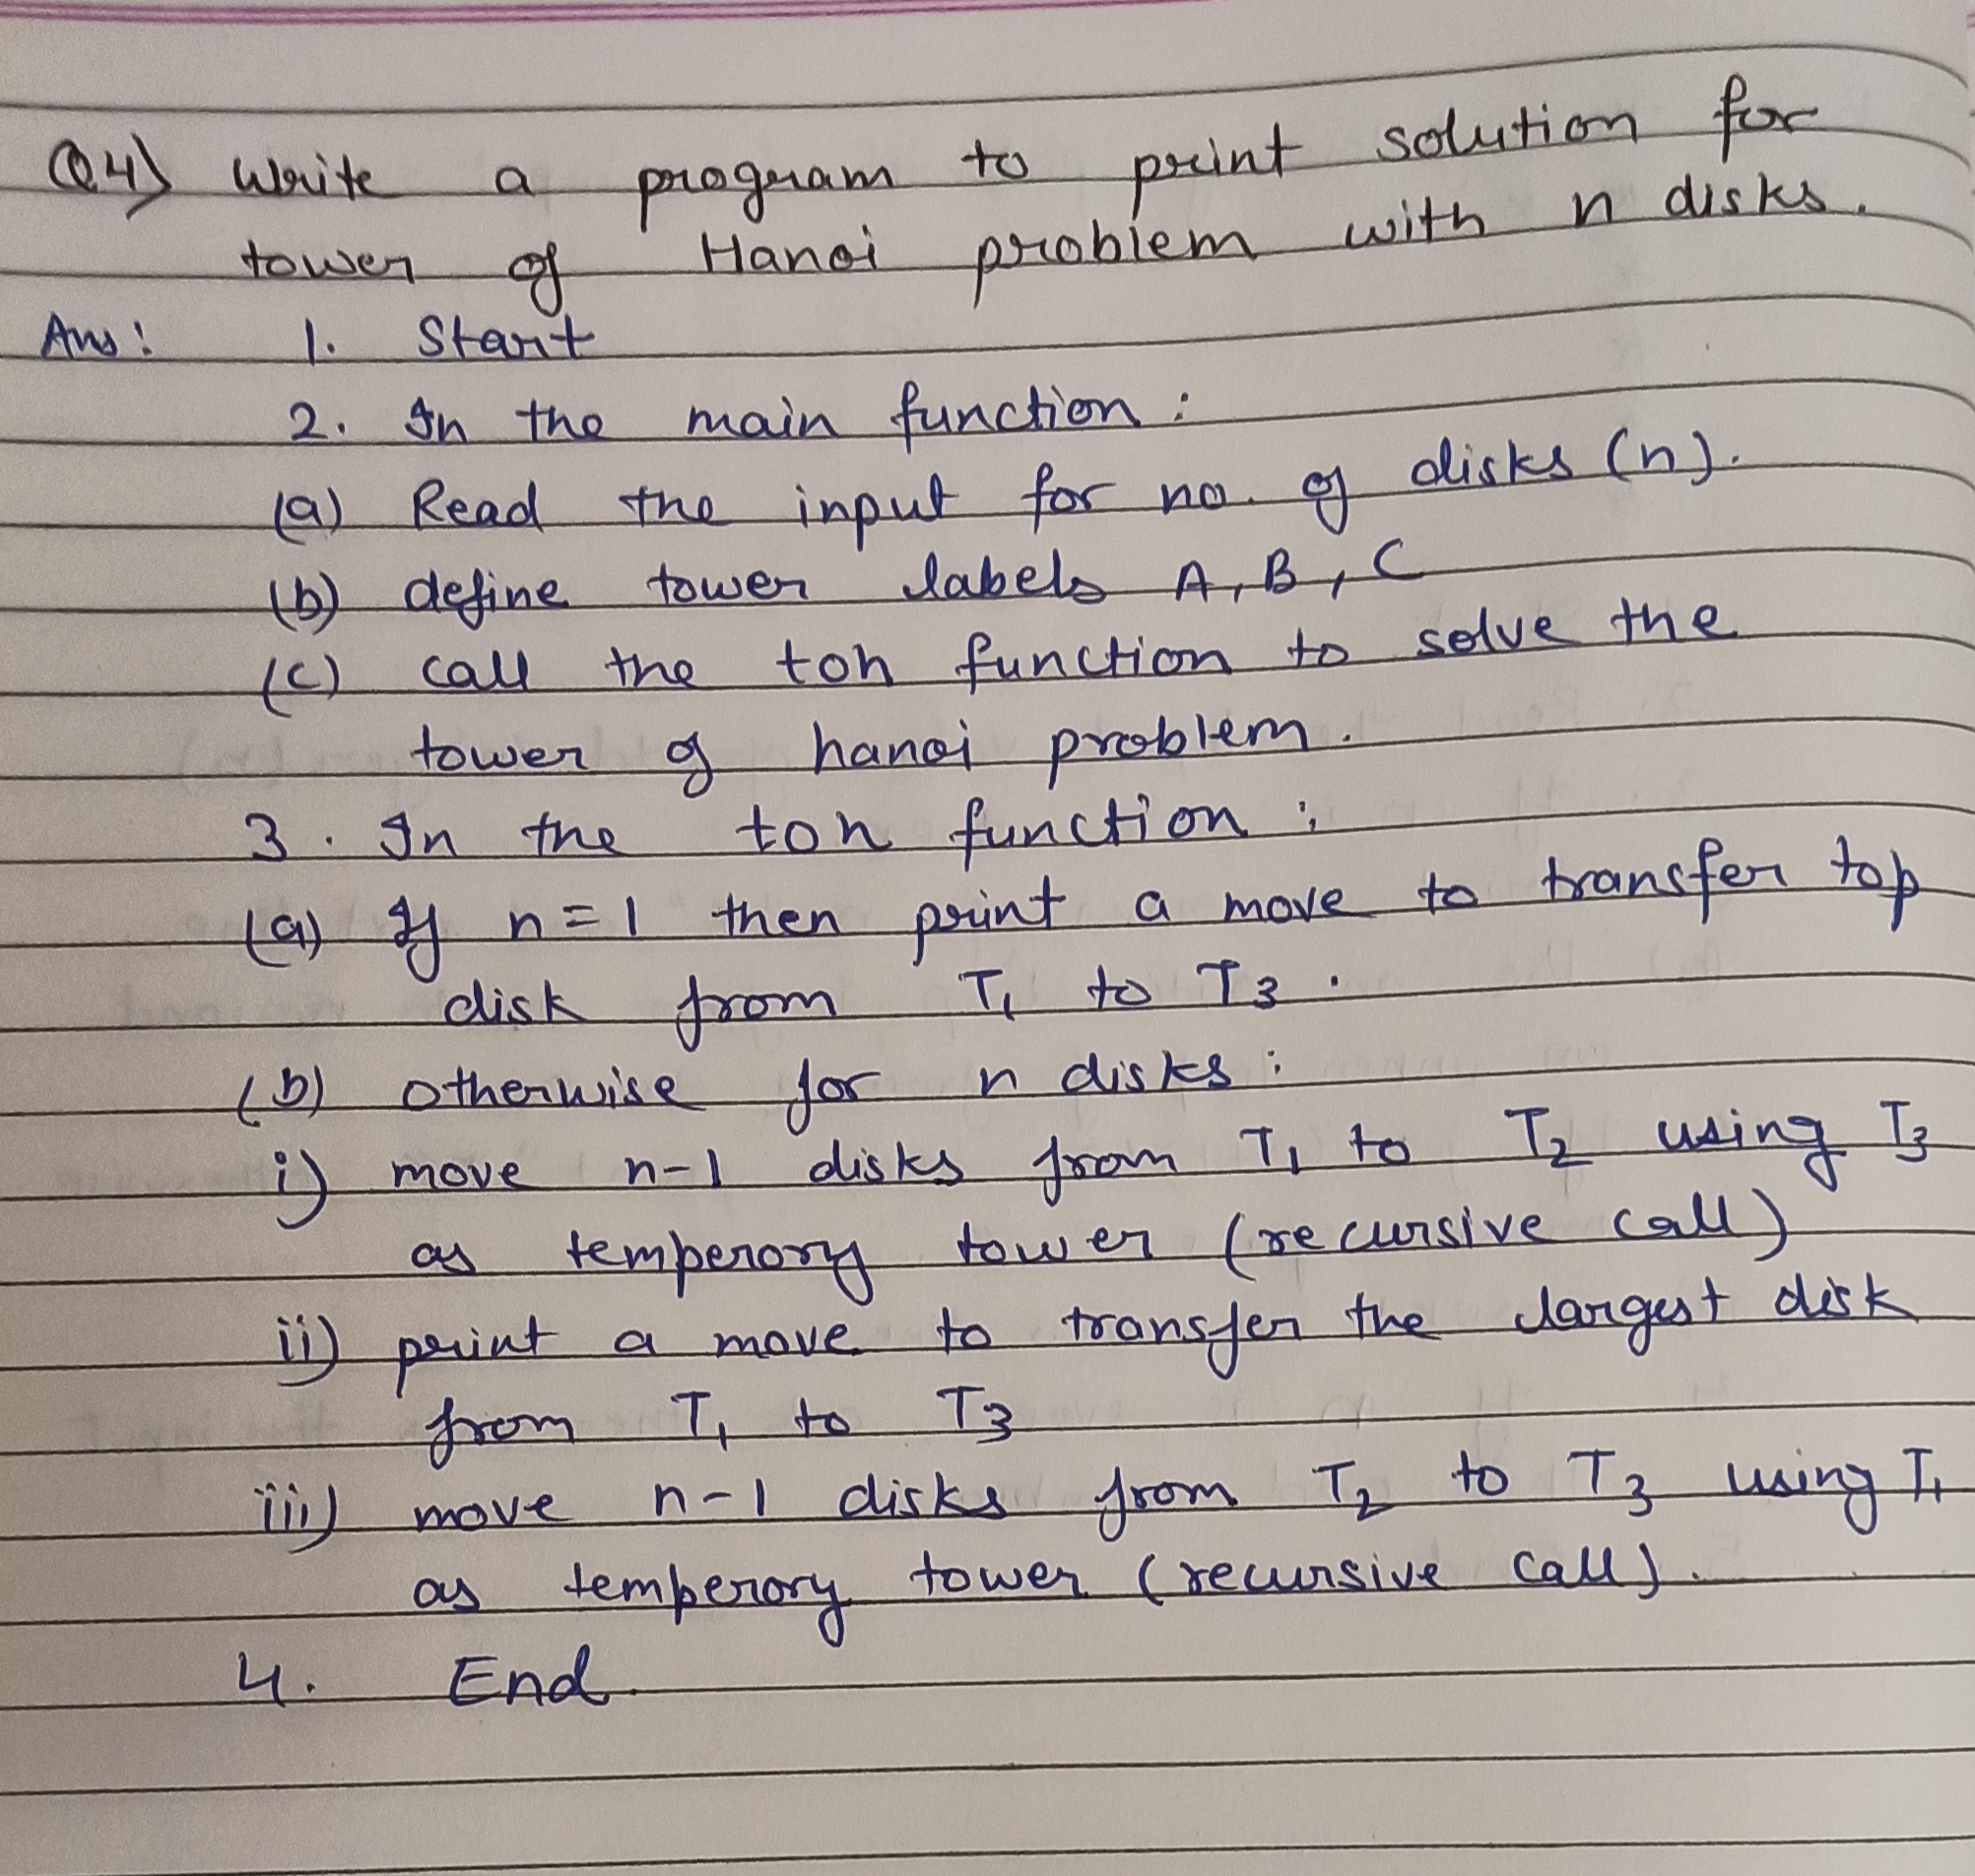 Q4) Write a program to print solution for
tower of Hanoi problem with n disks.
Ans: 1. Start
2. In the main function:
(a) Read the input for no. of disks (n).
(b) define tower labels A, B, C
(c) call the toh function to solve the
tower of hanoi problem.
3. In the toh function:
(a) If n=1 then print a move to transfer top
disk from T1 to T3.
(b) otherwise for n disks:
i) move n-1 disks from T1 to T2 using T3
as temperory tower (recursive call)
ii) print a move to transfer the largest disk
from T1 to T3
iii) move n-1 disks from T2 to T3 using T1
as temperory tower (recursive call).
4. End.